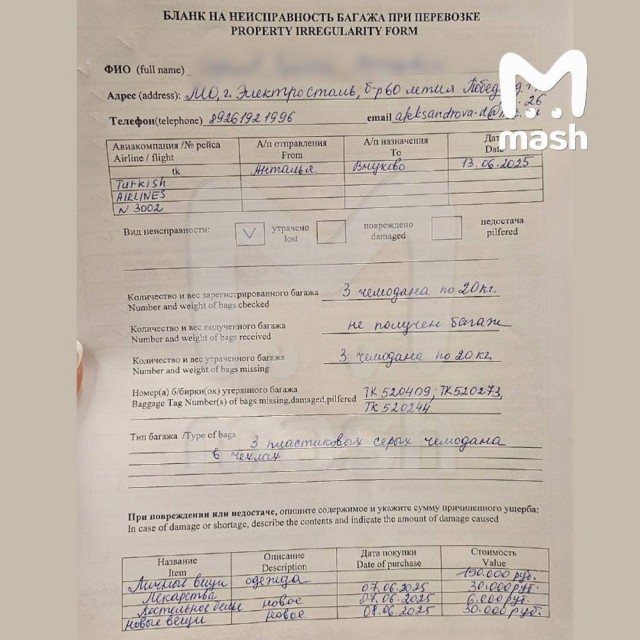 БЛАНК НА НЕИСПРАВНОСТЬ БАГАЖА ПРИ ПЕРЕВОЗКЕ
PROPERTY IRREGULARITY FORM
mash
ФИО (full name)
Адрес (address): МО, г. Электросталь, б-р 60 летия Победы, д.
26
Телефон(telephone) 89261921996 email aleksandrova-d@
Авиакомпания /№ рейса А/п отправления А/п назначения Дата
Airline / flight From To Date
tk Анталья Внуково 13.06.2025
Turkish
AIRLINES
N 3002
Вид неисправности: V утрачено повреждено недостача
lost damaged pilfered
Количество и вес зарегистрированного багажа 3 чемодана по 20кг.
Number and weight of bags checked
Количество и вес полученного багажа не получен багаж
Number and weight of bags received
Количество и вес утраченного багажа 3 чемодана по 20кг.
Number and weight of bags missing
Номер(а) б/бирки(ок) утерянного багажа TK520409, TK520273,
Baggage Tag Number(s) of bags missing,damaged,pilfered TK520244
Тип багажа /Type of bags 3 пластиковых серых чемодана
в чехлах
При повреждении или недостаче, опишите содержимое и укажите сумму причиненного ущерба:
In case of damage or shortage, describe the contents and indicate the amount of damage caused
Название Описание Дата покупки Стоимость
Item Description Date of purchase Value
Личные вещи одежда 150.000 руб.
Лекарства 07.06.2025 30.000 руб.
Постельное белье новое 07.06.2025 6.000 руб.
новые вещи новое 08.06.2025 30.000 руб.